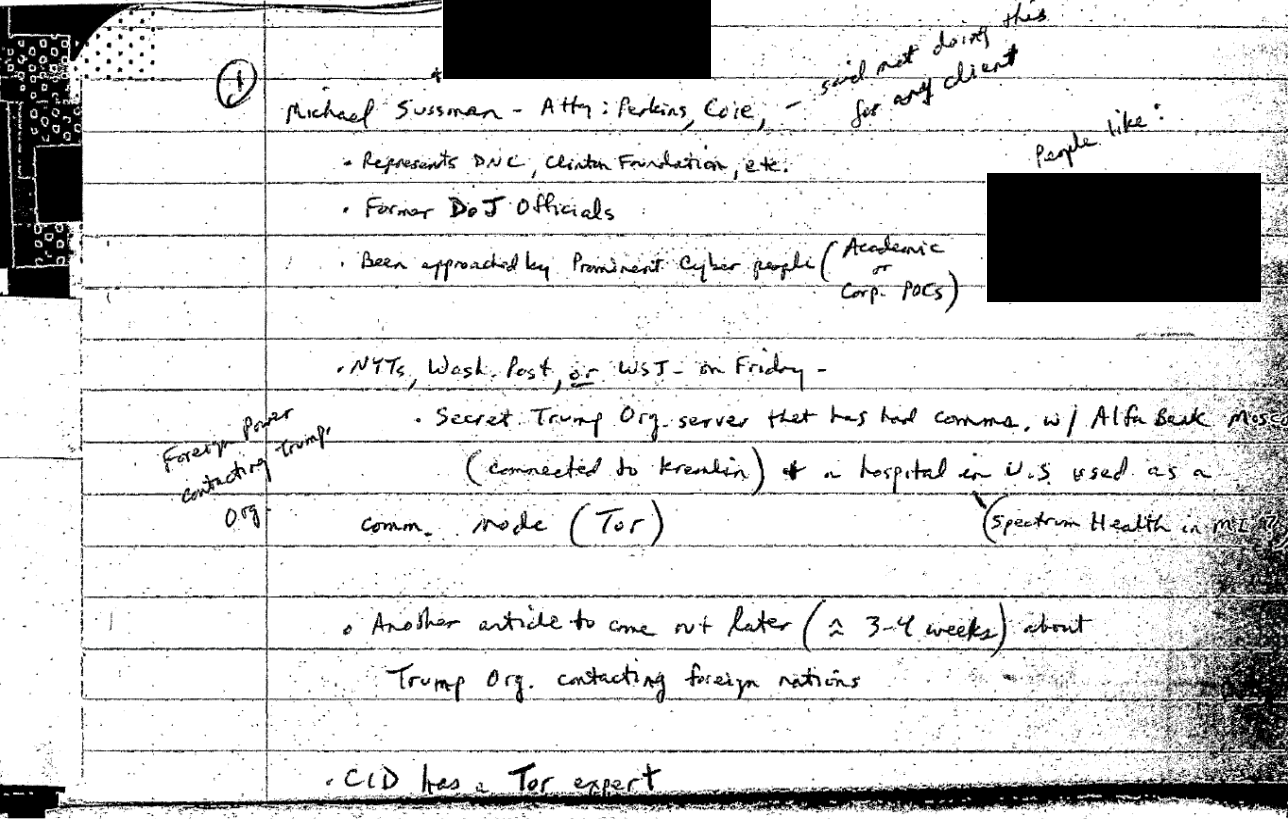 ①
Michael Sussman - Atty: Perkins, Coie, - said not doing this
for any client
People like:
• Represents DNC, Clinton Foundation, etc.
• Former DoJ Officials
• Been approached by Prominent Cyber people (Academic
or
Corp. POCs)
• NYTs, Wash. Post, or WSJ - on Friday -
• Secret Trump Org. server that has had comms. w/ Alfa Bank
(connected to Kremlin) + a hospital in U.S. used as a
comm. node (Tor)
(Spectrum Health in MI
Foreign Power
contacting Trump.
Org.
• Another article to come out later (≈ 3-4 weeks) about
Trump Org. contacting foreign nations
• CID has a Tor expert